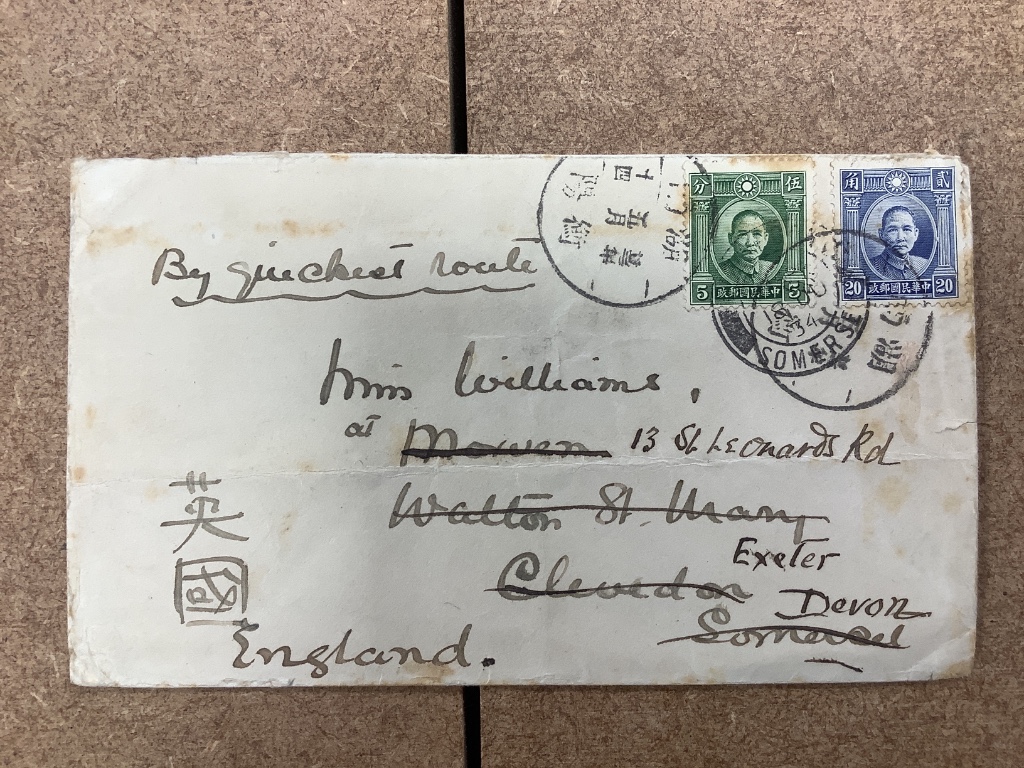 By quickest route
Miss Williams,
at Mowen 13 St Leonards Rd
Walton St. Mary
Exeter
Clevedon
Devon
Somerset
England.
英
國
分 伍
5 中華民國郵政 5
角 貳
20 中華民國郵政 20
衡陽
五月
十四
SOMERSE
34